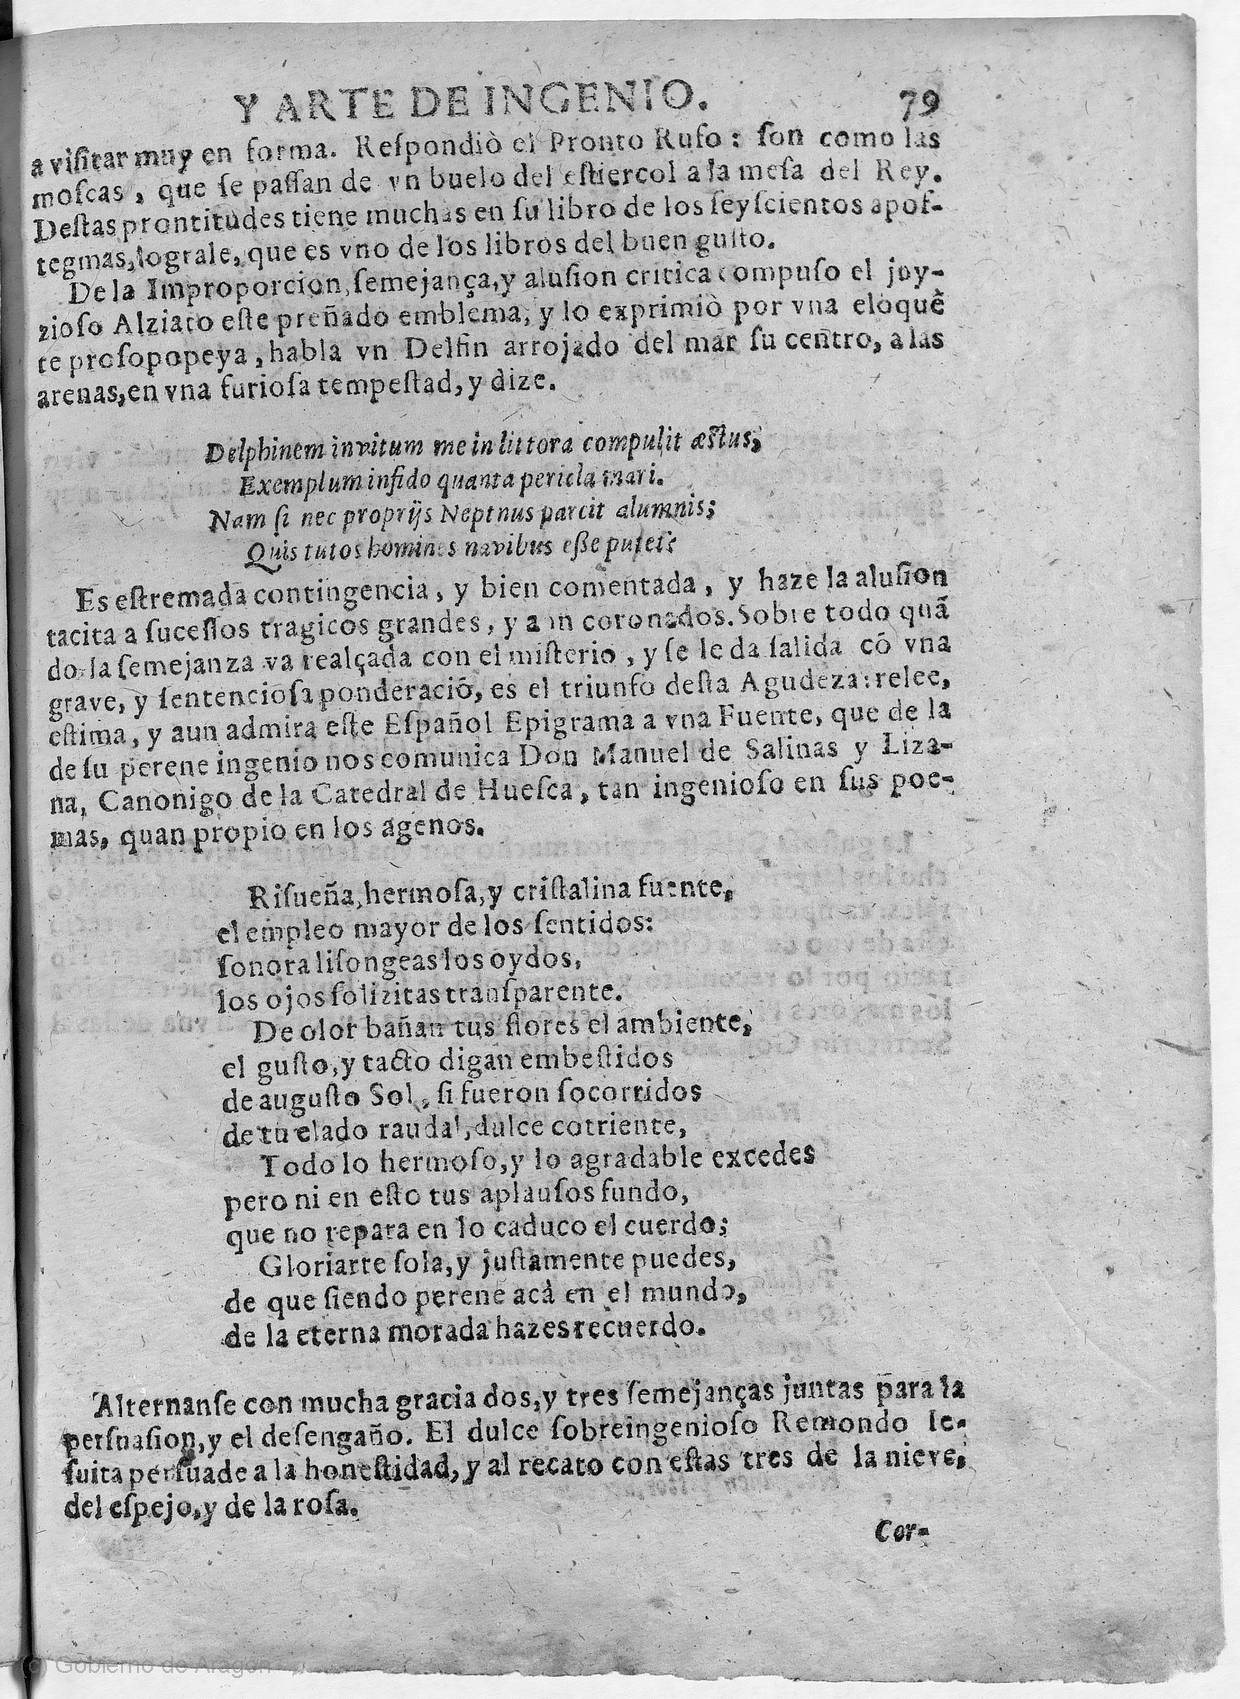 Y ARTE DE INGENIO. 79
a viſitar muy en forma. Reſpondiò el Pronto Rufo: ſon como las
moſcas, que ſe paſſan de vn buelo del eſtiercol a la meſa del Rey.
Deſtas prontitudes tiene muchas en ſu libro de los ſeyſcientos apof-
tegmas, lograle, que es vno de los libros del buen guſto.
De la Improporcion, ſemejança, y aluſion critica compuſo el juy-
zioſo Alziato eſte preñado emblema, y lo exprimiò por vna eloquẽ
te proſopopeya, habla vn Delfin arrojado del mar ſu centro, a las
arenas, en vna furioſa tempeſtad, y dize.
Delphinem invitum me in littora compulit æſtus,
Exemplum infido quanta pericla mari.
Nam ſi nec proprijs Neptnus parcit alumnis;
Quis tutos homines navibus eſſe putet?
Es eſtremada contingencia, y bien comentada, y haze la aluſion
tacita a ſuceſſos tragicos grandes, y aun coronados. Sobre todo quã
do la ſemejanza va realçada con el miſterio, y ſe le da ſalida cõ vna
grave, y ſentencioſa ponderaciõ, es el triunfo deſta Agudeza: relee,
eſtima, y aun admira eſte Eſpañol Epigrama a vna Fuente, que de la
de ſu perene ingenio nos comunica Don Manuel de Salinas y Liza-
na, Canonigo de la Catedral de Hueſca, tan ingenioſo en ſus poe-
mas, quan propio en los agenos.
Riſueña, hermoſa, y criſtalina fuente,
el empleo mayor de los ſentidos:
ſonora liſongeas los oydos,
los ojos ſolizitas tranſparente.
De olor bañan tus flores el ambiente,
el guſto, y tacto digan embeſtidos
de auguſto Sol, ſi fueron ſocorridos
de tu elado raudal, dulce corriente,
Todo lo hermoſo, y lo agradable excedes
pero ni en eſto tus aplauſos fundo,
que no repara en lo caduco el cuerdo;
Gloriarte ſola, y juſtamente puedes,
de que ſiendo perene acà en el mundo,
de la eterna morada hazes recuerdo.
Alternanſe con mucha gracia dos, y tres ſemejanças juntas para la
perſuaſion, y el deſengaño. El dulce ſobreingenioſo Remondo Ie-
ſuita perſuade a la honeſtidad, y al recato con eſtas tres de la nieve,
del eſpejo, y de la roſa.
Cor-
(c) Gobierno de Aragón